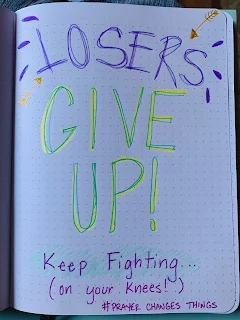 LOSERS
GIVE
UP!
Keep Fighting...
(on your Knees!)
#PRAYER CHANGES THINGS